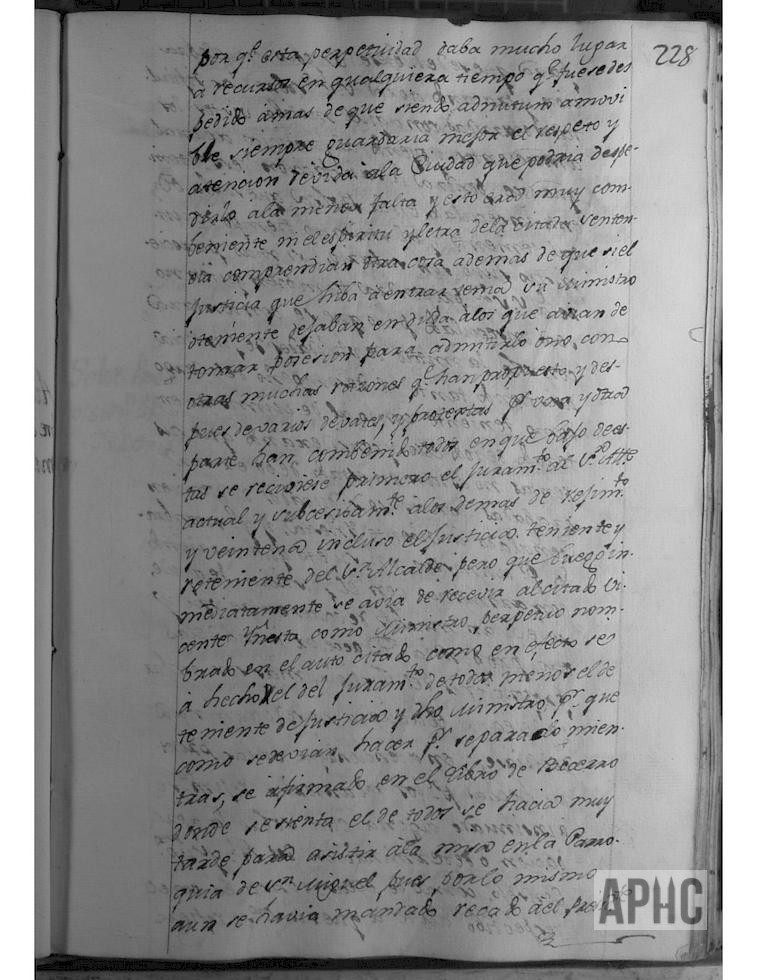 228
por q.e esta perpetuidad daba mucho lugar
a recursos en qualquiera tiempo q.e fuese des
pedido amas de que siendo adnutum amovi
ble siempre guardaria mejor el respeto y
atencion devida ala Ciudad que podria despe-
dirlo ala menor falta y esto era muy com-
beniente ni el espiritu y letra dela citada senten-
cia comprendian otra cosa ademas de que si el
Justicia que hiba a entrar su Ministro
oteniente dejaban en duda alos que avian de
tomar posesion para admitirlo ono con
otras muchas razones q.e han propuesto y des-
pues de varios devates, y protestas p.r una y otra
parte han combenido todos en que bajo de es
tas se reciviese primero el Juram.to al S.r Alc.e
actual y subcesivam.te alos demas de Rejim.to
y veintena incluso el Justicia teniente y
reteniente del S.r Alcalde pero que luego in-
mediatamente se avia de recevir al citado Vi-
cente Ynesta como Ministro perpetuo nom-
brado en el auto citado como en efecto se
à hecho el del Juram.to de todos menos el de
teniente de Justicia y dho Ministro p.r que
como sedevian hacer p.r separado mien-
tras, se afirmado en el Libro de Becerro
donde se sienta el de todos se hacia muy
tarde para asistir àla misa en la Parro-
quia de S.n Miguel pues por lo mismo
aun se havia mandado recado del
APHC